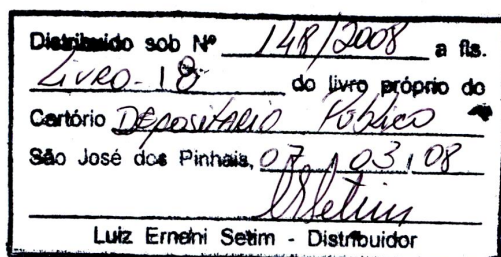 Distribuido sob Nº 148/2008 a fls.
Livro-18 do livro próprio do
Cartório Depositario Publico
São José dos Pinhais, 07/03/08
Luiz Ernani Setim - Distribuidor